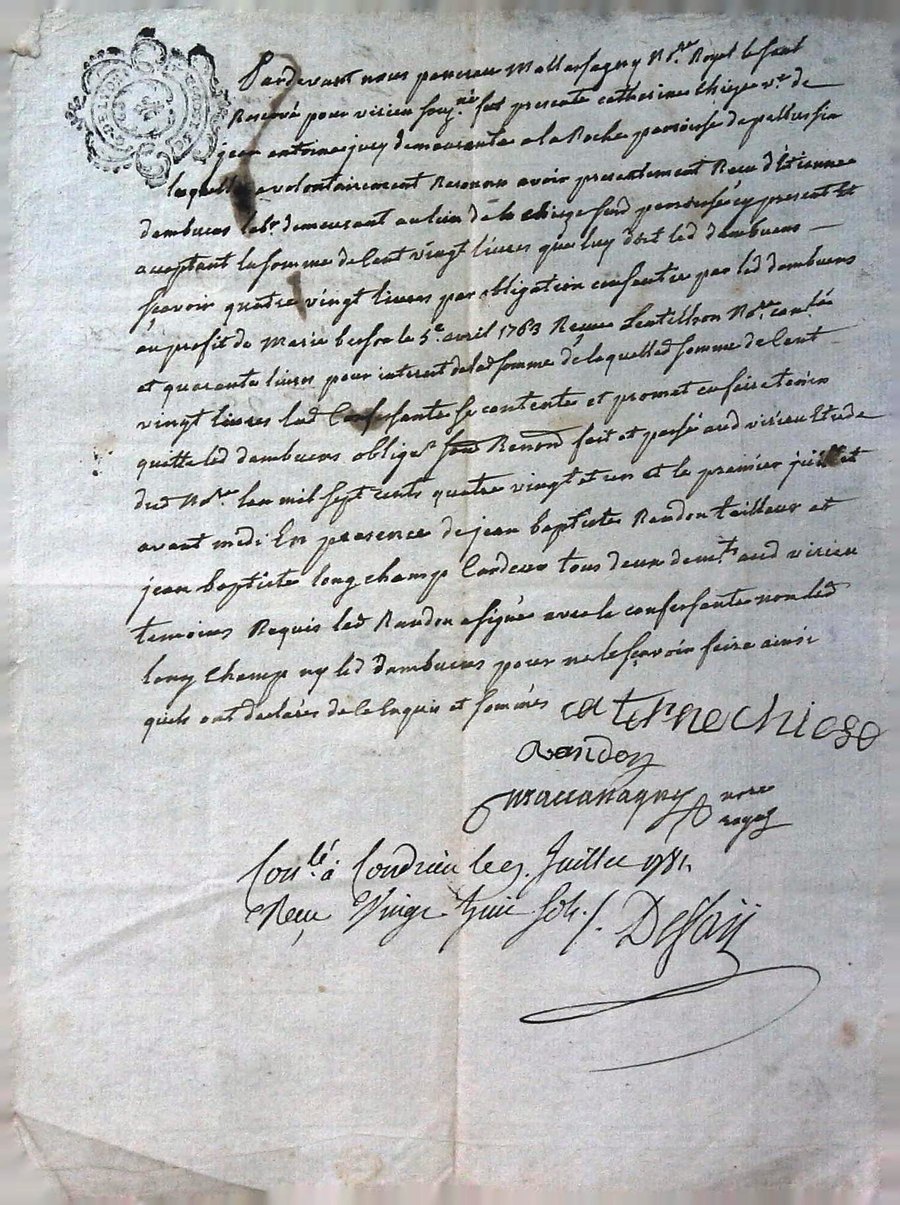 Pardevant nous ponceau Mallassagny No.re Royal le seul
Reservé pour virieu souz.né fut presente catherine chieze v.ve de
jean antoine jury demeurante a la Roche paroisse de pellussin
laquelle a volontairement Reconnu avoir presentement Recu d'Etienne
dambuens lab.r demeurant au lieu de la chieze paroisse cy present et
acceptant la somme de Cent vingt livres que luy doit led dambuens —
sçavoir quatre vingt livres par obligation consentie par led dambuens
au profit de Marie besson le 5.e avril 1763 Reçue Lentillon No.re con.lée
et quarante livres pour interest de lad somme de laquelle d somme de Cent
vingt livres lad Confessante se contente et promet en faire tenir
quitte led dambuens oblige.t Renon.t fait et passé aud virieu Etude
dud No.re lan mil sept cents quatre vingt et un et le premier juillet
avant midi En presence de jean baptiste Randon tailleur et
jean baptiste long champ Cardeur tous deux dem.ts aud virieu
temoins Requis led Randon a signé avec la confessante non led
long champ ny led dambuens pour ne le sçavoir faire ainsi
quils ont declarés de ce Enquis et sommés
caterine chieze
Randon
Mallassagny nore
royal
Con.lé à Condrieu le 9. Juillet 1781
Reçu Vingt huit sols /. Dessaÿ